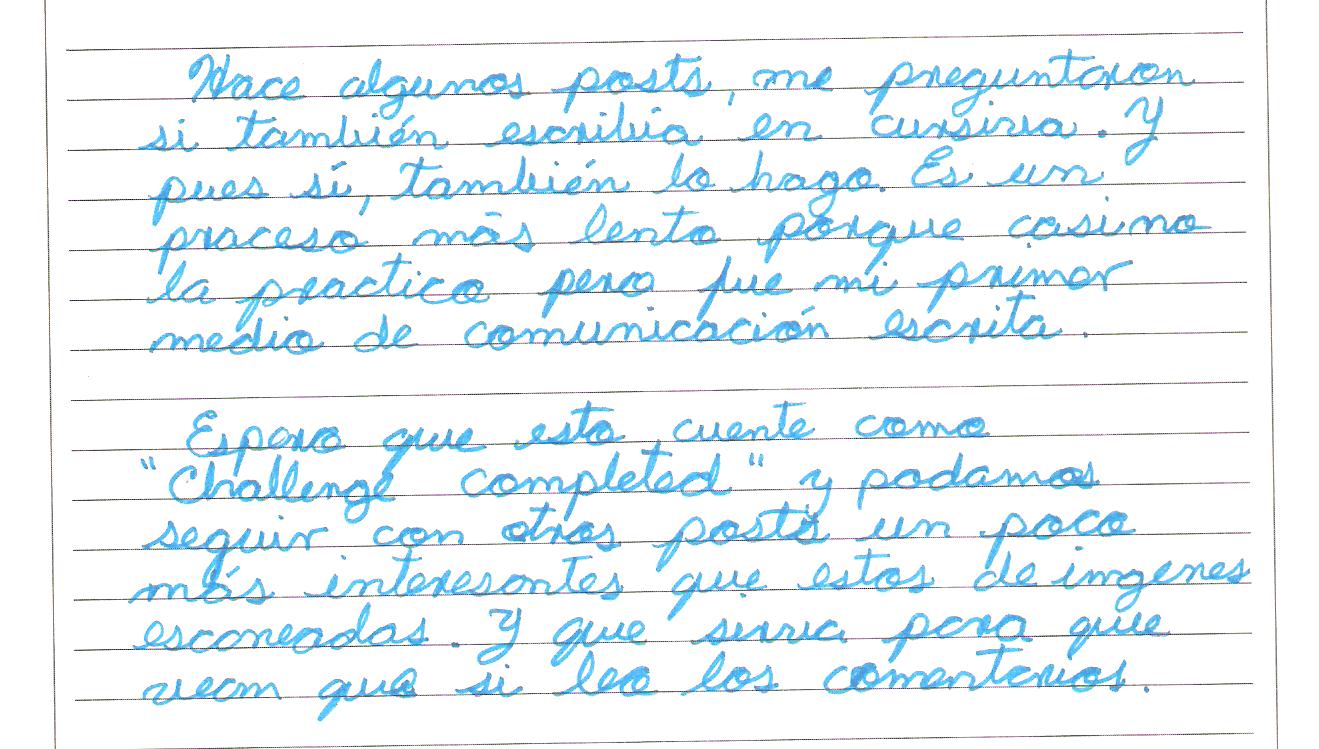 Hace algunos posts, me preguntaron
si también escribia en cursiva. Y
pues sí, también lo hago. Es un
proceso más lento porque casi no
la practico pero fue mi primer
medio de comunicación escrita.
Espero que esto cuente como
"Challenge completed" y podamos
seguir con otros posts un poco
más interesantes que estos de imgenes
escaneadas. Y que sirva para que
vean que si leo los comentarios.